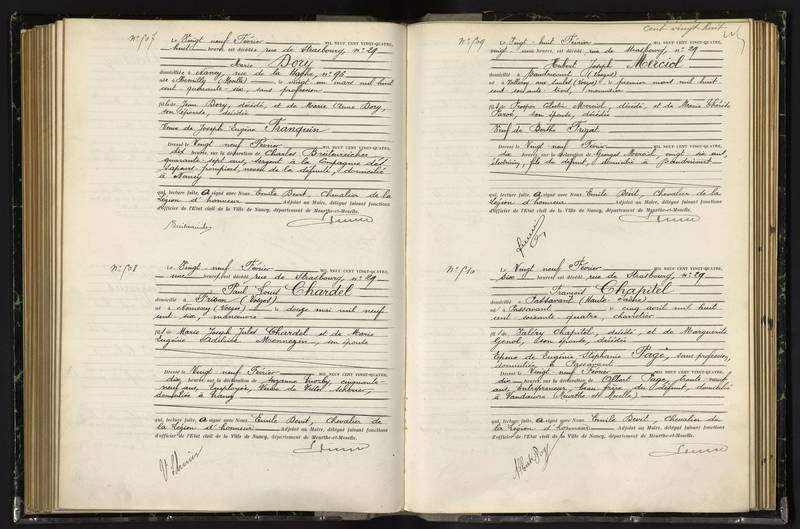 N° 507
Le Vingt neuf Février MIL NEUF CENT VINGT-QUATRE,
huit heures est décédée rue de Strasbourg, n° 29
Marie Dory
domiciliée à Nancy, rue de la n° 96
née à (Moselle) le vingt un mars mil huit
cent quarante-six, sans profession
fille de Jean Dory, décédé, et de Marie Anne Dory
son épouse, décédée
Veuve de Joseph Eugène Franquin
Dressé le Vingt neuf Février MIL NEUF CENT VINGT-QUATRE,
dix heures, sur la déclaration de Charles Breitenreicher
quarante-sept ans, sergent à la Compagnie des
Sapeurs-pompiers, neveu de la défunte, domicilié
à Nancy
qui, lecture faite, a signé avec Nous Emile Devit, Chevalier de la
Légion d'honneur Adjoint au Maire, délégué faisant fonctions
d'officier de l'Etat civil de la Ville de Nancy, département de Meurthe-et-Moselle.
N° 508
Le Vingt-neuf Février MIL NEUF CENT VINGT-QUATRE,
une heure, est décédé rue de Strasbourg, n° 29
Paul Louis Chardel
domicilié à Frison (Vosges)
né à Nomexy (Vosges) le douze mai mil neuf
cent six, manœuvre
fils de Marie Joseph Jules Chardel et de Marie
Eugénie Adeline Mennezin, son épouse
Dressé le Vingt-neuf Février MIL NEUF CENT VINGT-QUATRE,
dix heures, sur la déclaration de Suzanne cinquante-
neuf ans, employée, Veuve de Victor
domiciliée à Nancy
qui, lecture faite, a signé avec Nous Emile Devit, Chevalier de
la Légion d'honneur Adjoint au Maire, délégué faisant fonctions
d'officier de l'Etat civil de la Ville de Nancy, département de Meurthe-et-Moselle.
cent vingt huit
N° 509
Le Vingt-huit Février MIL NEUF CENT VINGT-QUATRE,
vingt-une heures, est décédé rue de Strasbourg, n° 29
Hubert Joseph Merciol
domicilié à Baudricourt (Vosges)
né à (Vosges) le premier mars mil huit
cent soixante trois, manouvrier
fils de Prosper Célestin Merciol, décédé, et de Marie Thérèse
son épouse, décédée
Veuf de Berthe Frigal
Dressé le Vingt neuf Février MIL NEUF CENT VINGT-QUATRE,
dix heures, sur la déclaration de Georges Merciol, vingt six ans,
électricien, fils du défunt, domicilié à Baudricourt
qui, lecture faite, a signé avec Nous Emile Devit, Chevalier de la
Légion d'honneur Adjoint au Maire, délégué faisant fonctions
d'officier de l'Etat civil de la Ville de Nancy, département de Meurthe-et-Moselle.
N° 510
Le Vingt neuf Février MIL NEUF CENT VINGT-QUATRE,
six heures, est décédé rue de Strasbourg, n° 29
François Chapitel
domicilié à Passavant (Haute Saône)
né à Passavant le deux avril mil huit
cent soixante quatre, charretier
fils de Valéry Chapitel, décédé, et de Marguerite
Genol, son épouse, décédée
Epoux de Eugénie Stéphanie Page, sans profession,
domiciliée à Passavant
Dressé le Vingt-neuf Février MIL NEUF CENT VINGT-QUATRE,
dix heures, sur la déclaration de Albert Page, trente neuf
ans, Entrepreneur, beau frère du défunt, domicilié
à Vandœuvre (Meurthe et Moselle)
qui, lecture faite, a signé avec Nous Emile Devit, Chevalier de
la Légion d'honneur Adjoint au Maire, délégué faisant fonctions
d'officier de l'Etat civil de la Ville de Nancy, département de Meurthe-et-Moselle.